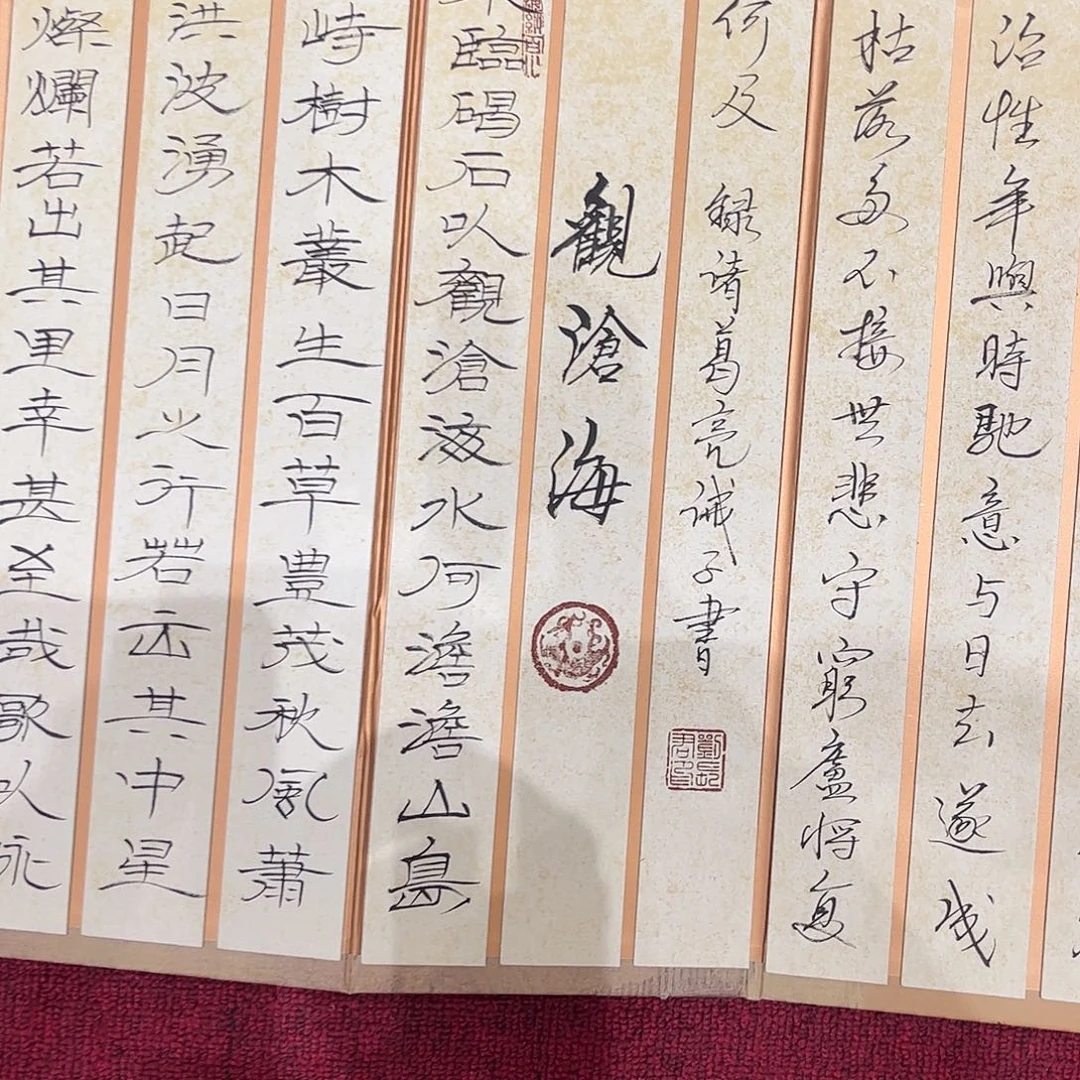 治性年與時馳意与日去遂成
枯落多不接世悲守窮廬將復
何及 録諸葛亮诫子書
觀滄海
臨碣石以觀滄海水何澹澹山島
峙樹木叢生百草豊茂秋風蕭
洪波湧起日月之行若出其中星
燦爛若出其里幸甚至哉歌以